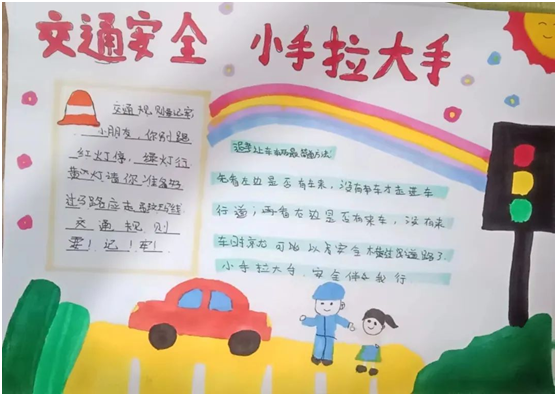 交通安全 小手拉大手
交通规则要记牢
小朋友，你别跑
红灯停，绿灯行
黄灯请你准备好
过马路应走斑马线
交通规则
要！记！牢！
避免让车
最简单方法
先看左边是否有车来，没有车才走进车
行道；再看右边是否有来车，没有来
车时就可以安全
小手拉大手，安全伴我行